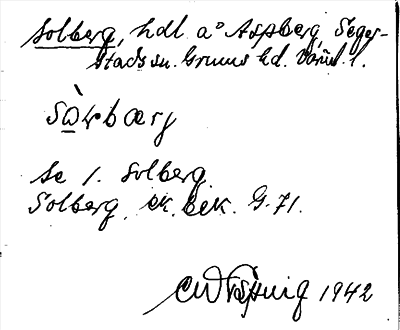 Solberg, hdl. a° Aspberg, Seger-
stads sn. Grums hd. Värml. l.
Sòɷrbærj
se 1. Solberg.
Solberg, ek. bek. G. 71.
1942